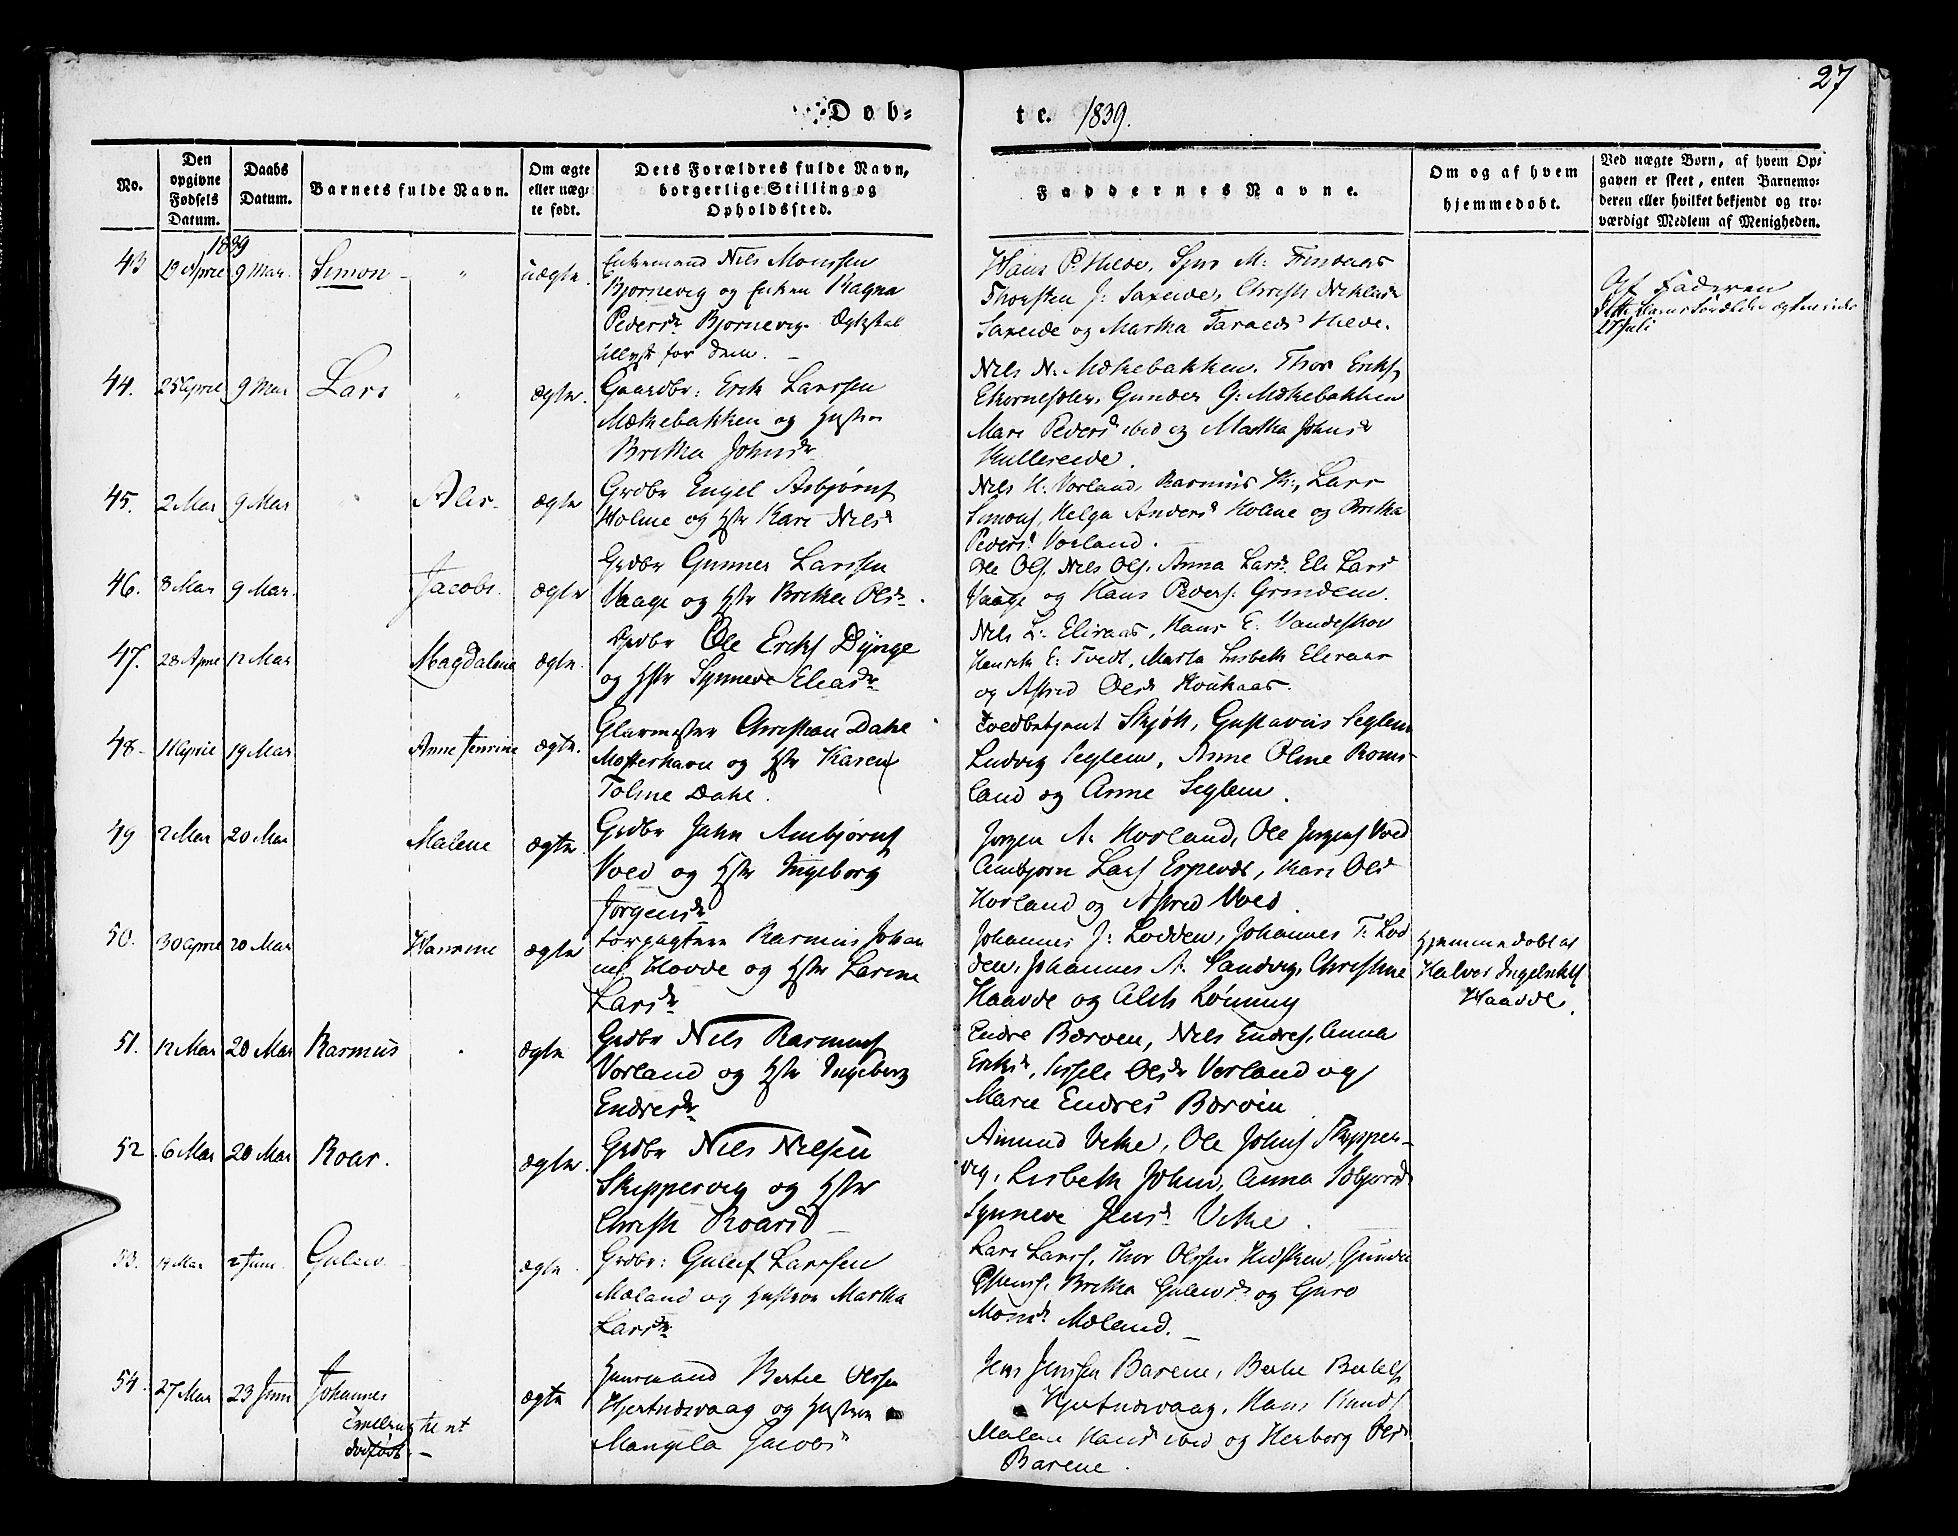 27
Døb-
te. 1839.
No.
Den opgivne Fødsels Datum.
Daabs Datum.
Barnets fulde Navn.
Om ægte eller uæg-te født.
Dets Forældres fulde Navn, borgerlige Stilling og Opholdssted.
Faddernes Navne.
Om og af hvem hjemmedøbt.
Ved uægte Børn, af hvem Op-
gaven er skeet, enten Barnemo-
deren eller hvilket bekjendt og tro-
værdigt Medlem af Menigheden.
1839
43 19 April 9 Mai Simon uægte
Enkemand Nils Monssen
Bjørnevig og Enken Ragna
Pedersdr Bjørnevig. Ægteskab
tillyst for dem. –
Hans P. Hilde, Sjur M:
Thorsten J:
og Martha Hilde.
Af Faderen
27 Juli
44. 25 April 9 Mai Lars ægte.
Gaardbr: Erik Larssen
Mækebakken og Hustru
Britha Johnsdr
Nils N: Mækebakken, Thor Eriks.
Gunder G: Mækebakken
Mari Peders ibid og Martha Johnsdr
Kullereide.
45. 2 Mai 9 Mai ægte
Grdbr Engel Asbjørns
Holme og Hstr Kari Nilsdr
Nils H: Vorland, Rasmus K:, Lars
Simons, Helga Andersdr Holme og Britha
Pedersd Vorland.
46. 8 Mai 9 Mai. Jacobi. ægte
Grdbr Gunner Larssen
Vaage og Hstr Britha Olsdr.
Ole Ols. Nils Ols. Anna Larsdr. Eli Larsd
Vaage og Hans Peders. Grinden.
47. 28 April 12 Mai Magdalena ægte.
Grdbr Ole Eriks Dynge
og Hstr Synneve Eliasdr
Nils L: Eliraas, Hans E:
Henrik E: Tvedt, Marta Lisbeth Eliraas
og Astrid Olsdr Houkaas.
48 11 April 19 Mai Anne Jenrine ægte.
Glarmester Christian Dahl
Mosterhavn og Hstr Karen
Toline Dahl.
Toldbetjent Gustavus Seglem
Ludvig Seglem, Anne Oline Roms-
land og Anne Seglem.
49 2 Mai 20 Mai Malene ægte.
Grdbr John Ambjørns
Voed og Hstr Ingeborg
Jørgensdr
Jørgen A. Hovland, Ole Jørgens Voed
Ambjørn Lars Espevdt, Kari Olsd
Hovland og Astrid Voed.
50. 30 April 20 Mai Hansine ægte
Forpagtere Rasmus Johan
nes Hovde og Hstr Larine
Larsdr
Johannes J: Lodden, Johannes T: Lod
den, Johannes A. Sandvig, Christine
Haavde og Lønning
Hjemmedøbt af
Halvor
Haavde.
51. 12 Mai 20 Mai Rasmus ægte
Grdbr Nils Rasmus
Vorland og Hstr Ingeborg
Endresdr
Endre Børven, Nils Endres, Anna
Eriksdr, Sissele Olsdr Vorland og
Mari Endresd Børven
52 6 Mai 20 Mai Roar. ægte
Grdbr Nils Nilsen
Skippervig og Hstr
Christi Roarsd –
Amund Vike, Ole Johns Skipper-
vig, Lisbeth Johns, Anna
Synneve Jensdr Vike.
53. 14 Mai 2 Juni. Gulew ægte.
Grdbr: Guleif Larssen
Mæland og Hustrue Martha
Larsdr
Lars Larss. Thor Olssen Gunder
Britha Gulewsdr og Guro
Monsdr Mæland. –
54. 27 Mai 23 Juni Johannes ægte
Tvilling til et
dødfødt. –
Huusmand Bertel Olssen
Hjertnesvaag og Hustru
Mangela Jacobsd
Jens Jenssen Barene, Bertel
Hjertnesvaag, Hans Knuds
Malene Hansd ibid og Herborg Olsd
Barene.